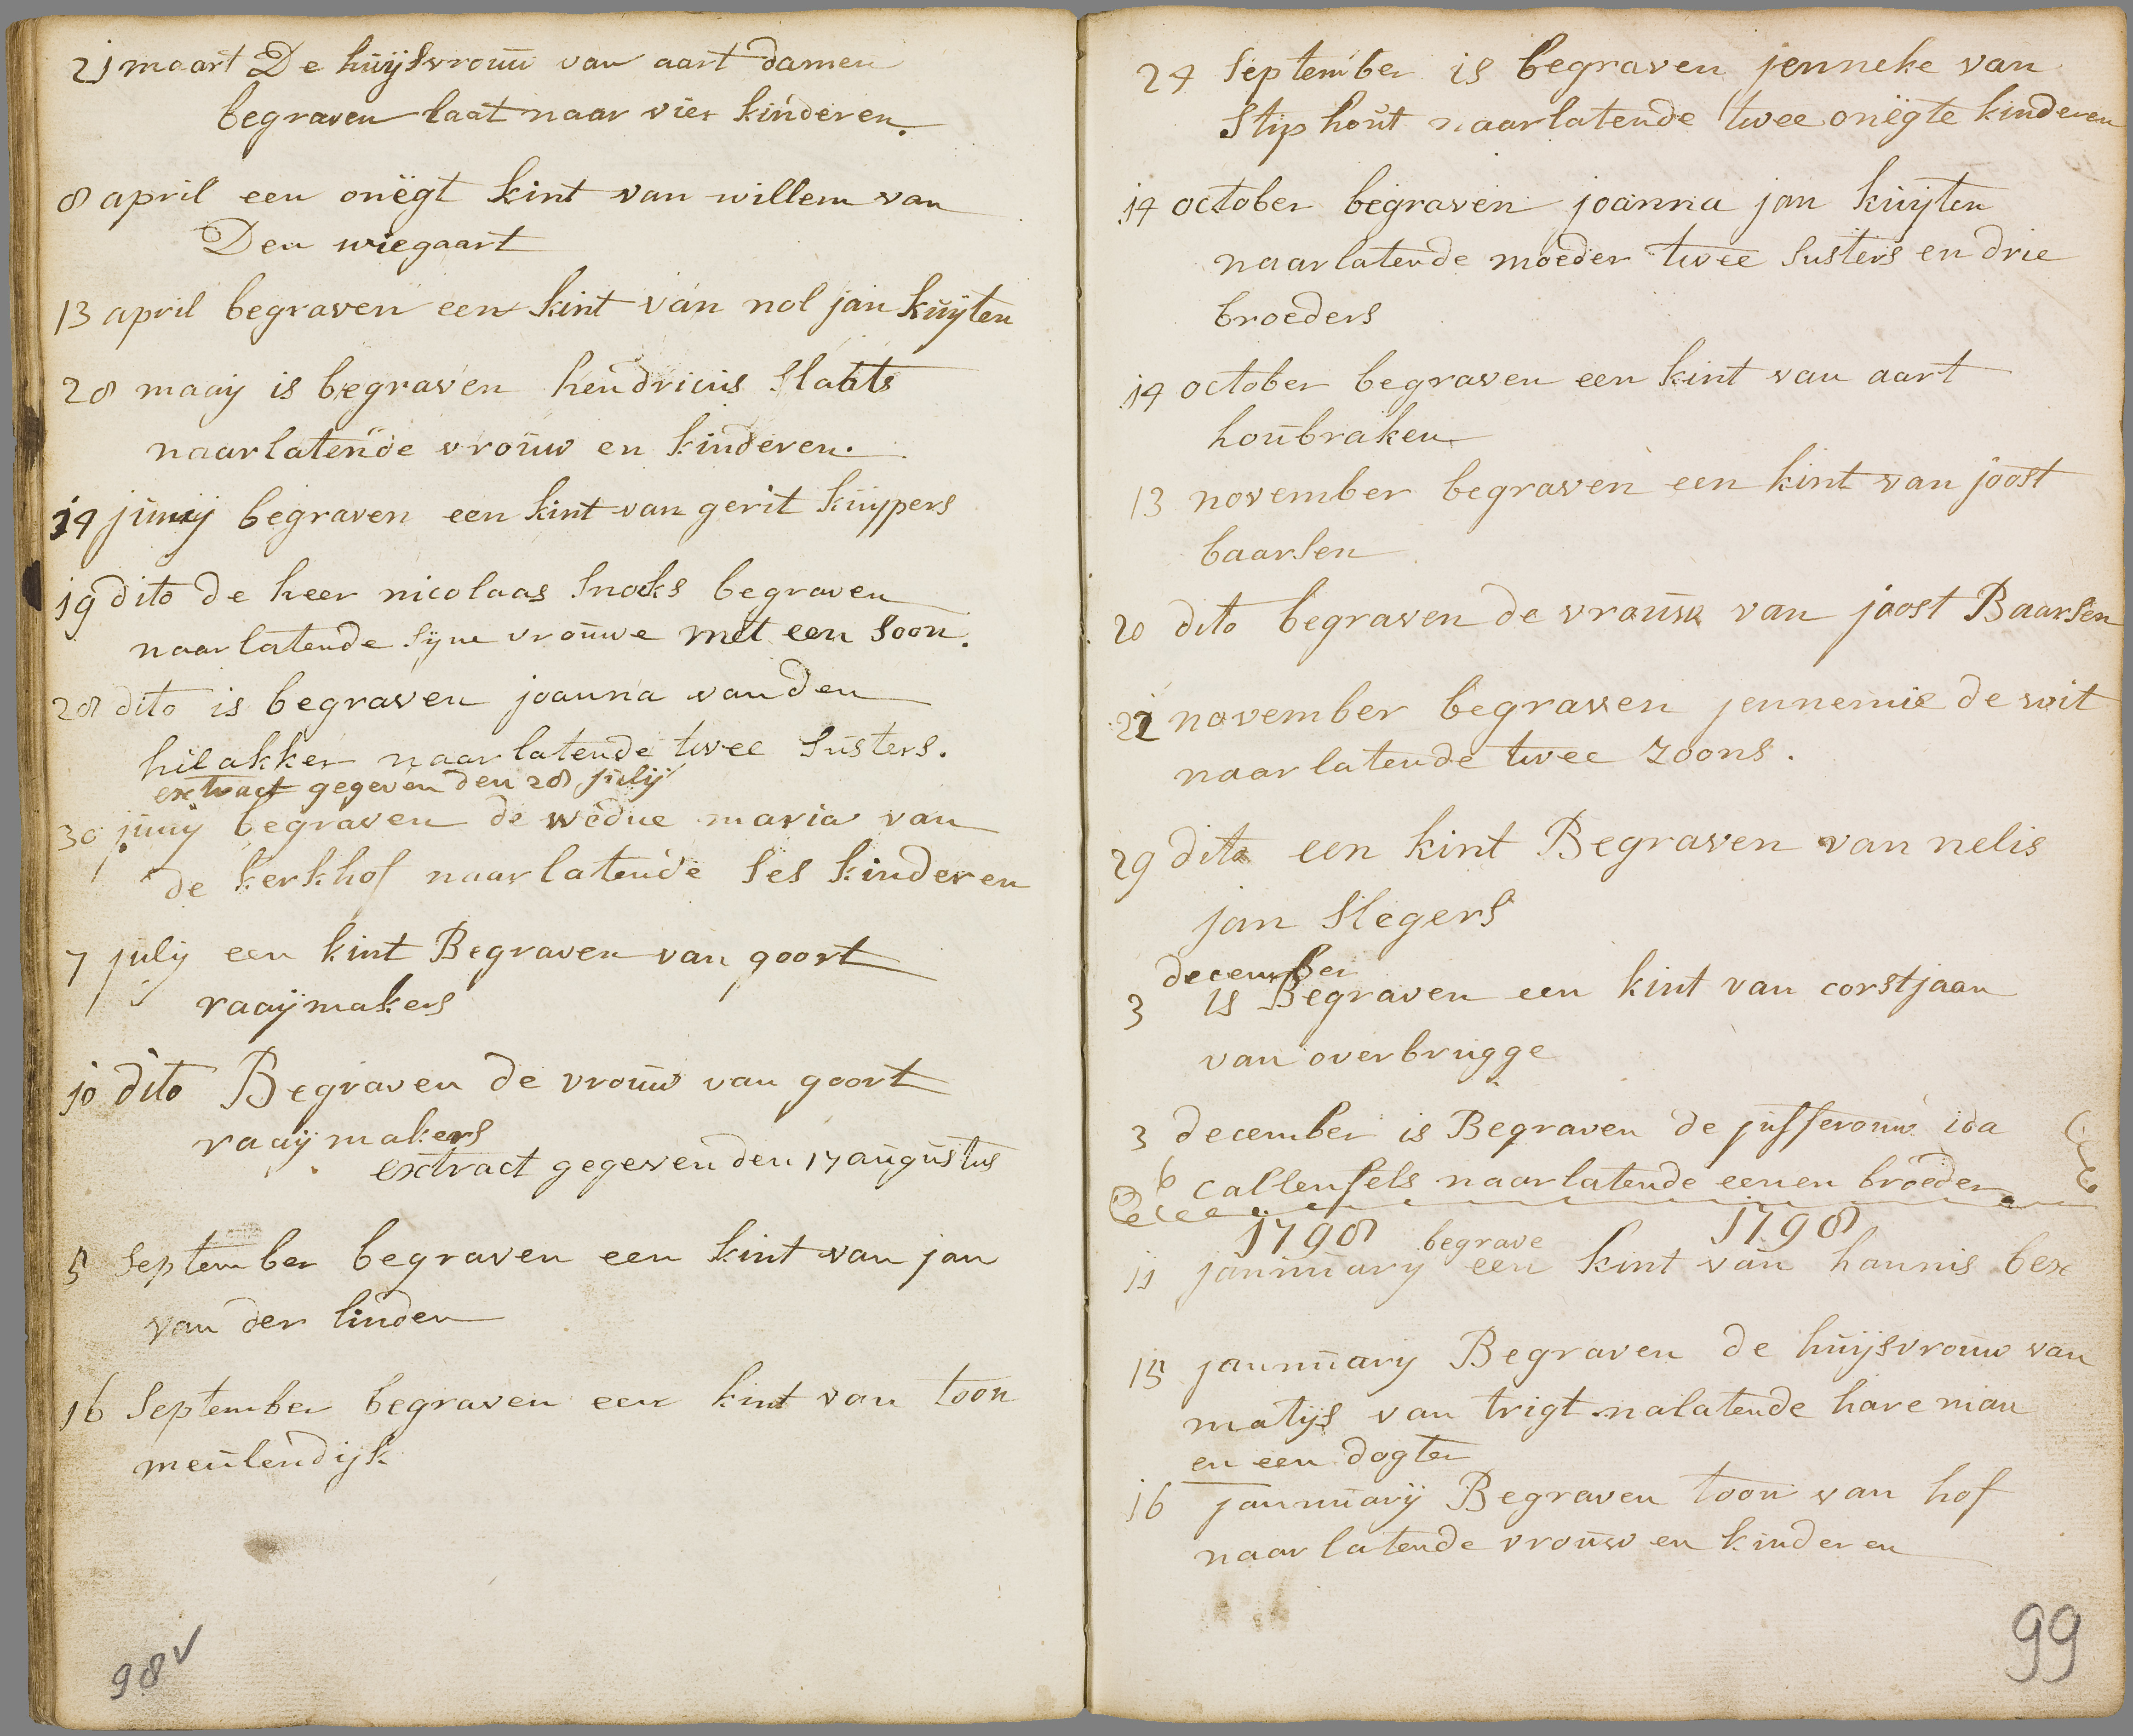 21 maart De huijsvrouw van aart damen
begraven laat naar vier kinderen.
8 april een onëgt kint van willem van
Den wiegaart
13 april begraven een kint van nol jan kuijten
28 maaij is begraven hendricus slaats
naarlatende vrouw en kinderen.
14 junij begraven een kint van gerit kuijpers
19 dito de heer nicolaas snoeks begraven
naarlatende sijne vrouwe met een soon.
28 dito is begraven joanna van den
hilakker naarlatende twee susters.
extract gegeven den 28 julij
30 junij begraven de wedue maria van
de kerkhof naarlatende ses kinderen
7 julij een kint Begraven van goort
raaijmakers
10 dito Begraven de vrouw van goort
raaijmakers
extract gegeven den 17 augustus
5 September begraven een kint van jan
van der linden
16 September begraven een kint van toon
meulendijk
98v
24 September is begraven jenneke van
Stiphout naarlatende twee onëgte kinderen
14 october begraven joanna jan kuijten
naarlatende moeder twee susters en drie
broeders
14 october begraven een kint van aart
houbraken
13 november begraven een kint van joost
baarsen
20 dito begraven de vrouw van joost Baarsen
22 november begraven jennemie de wit
naarlatende twee zoons.
29 dito een kint Begraven van nelis
jan Slegers
december
3 is Begraven een kint van corstjaan
van overbrugge
3 december is Begraven de jufferouw ida
6 callenfels naarlatende eenen broeder
1798 begrave 1798
11 jannuarij een kint van hannis bex
15 jannuarij Begraven de huijsvrouw van
matijs van trigt nalatende hare man
en een dogter
16 jannuarij Begraven toon van hof
naarlatende vrouw en kinderen
99